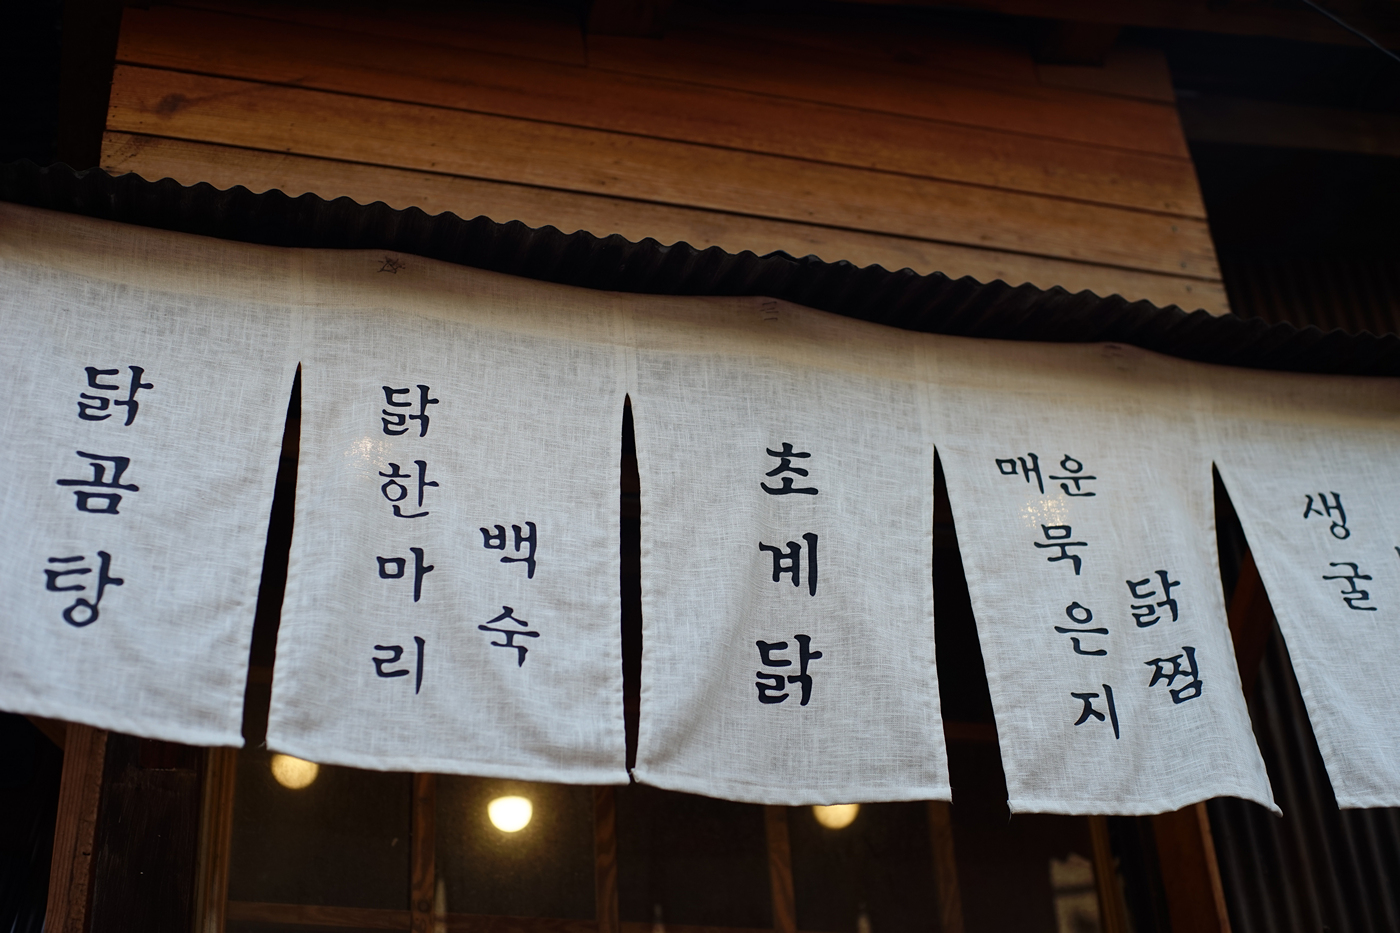 닭곰탕
닭한마리
백숙
초계닭
매운
묵은지
닭찜
생굴